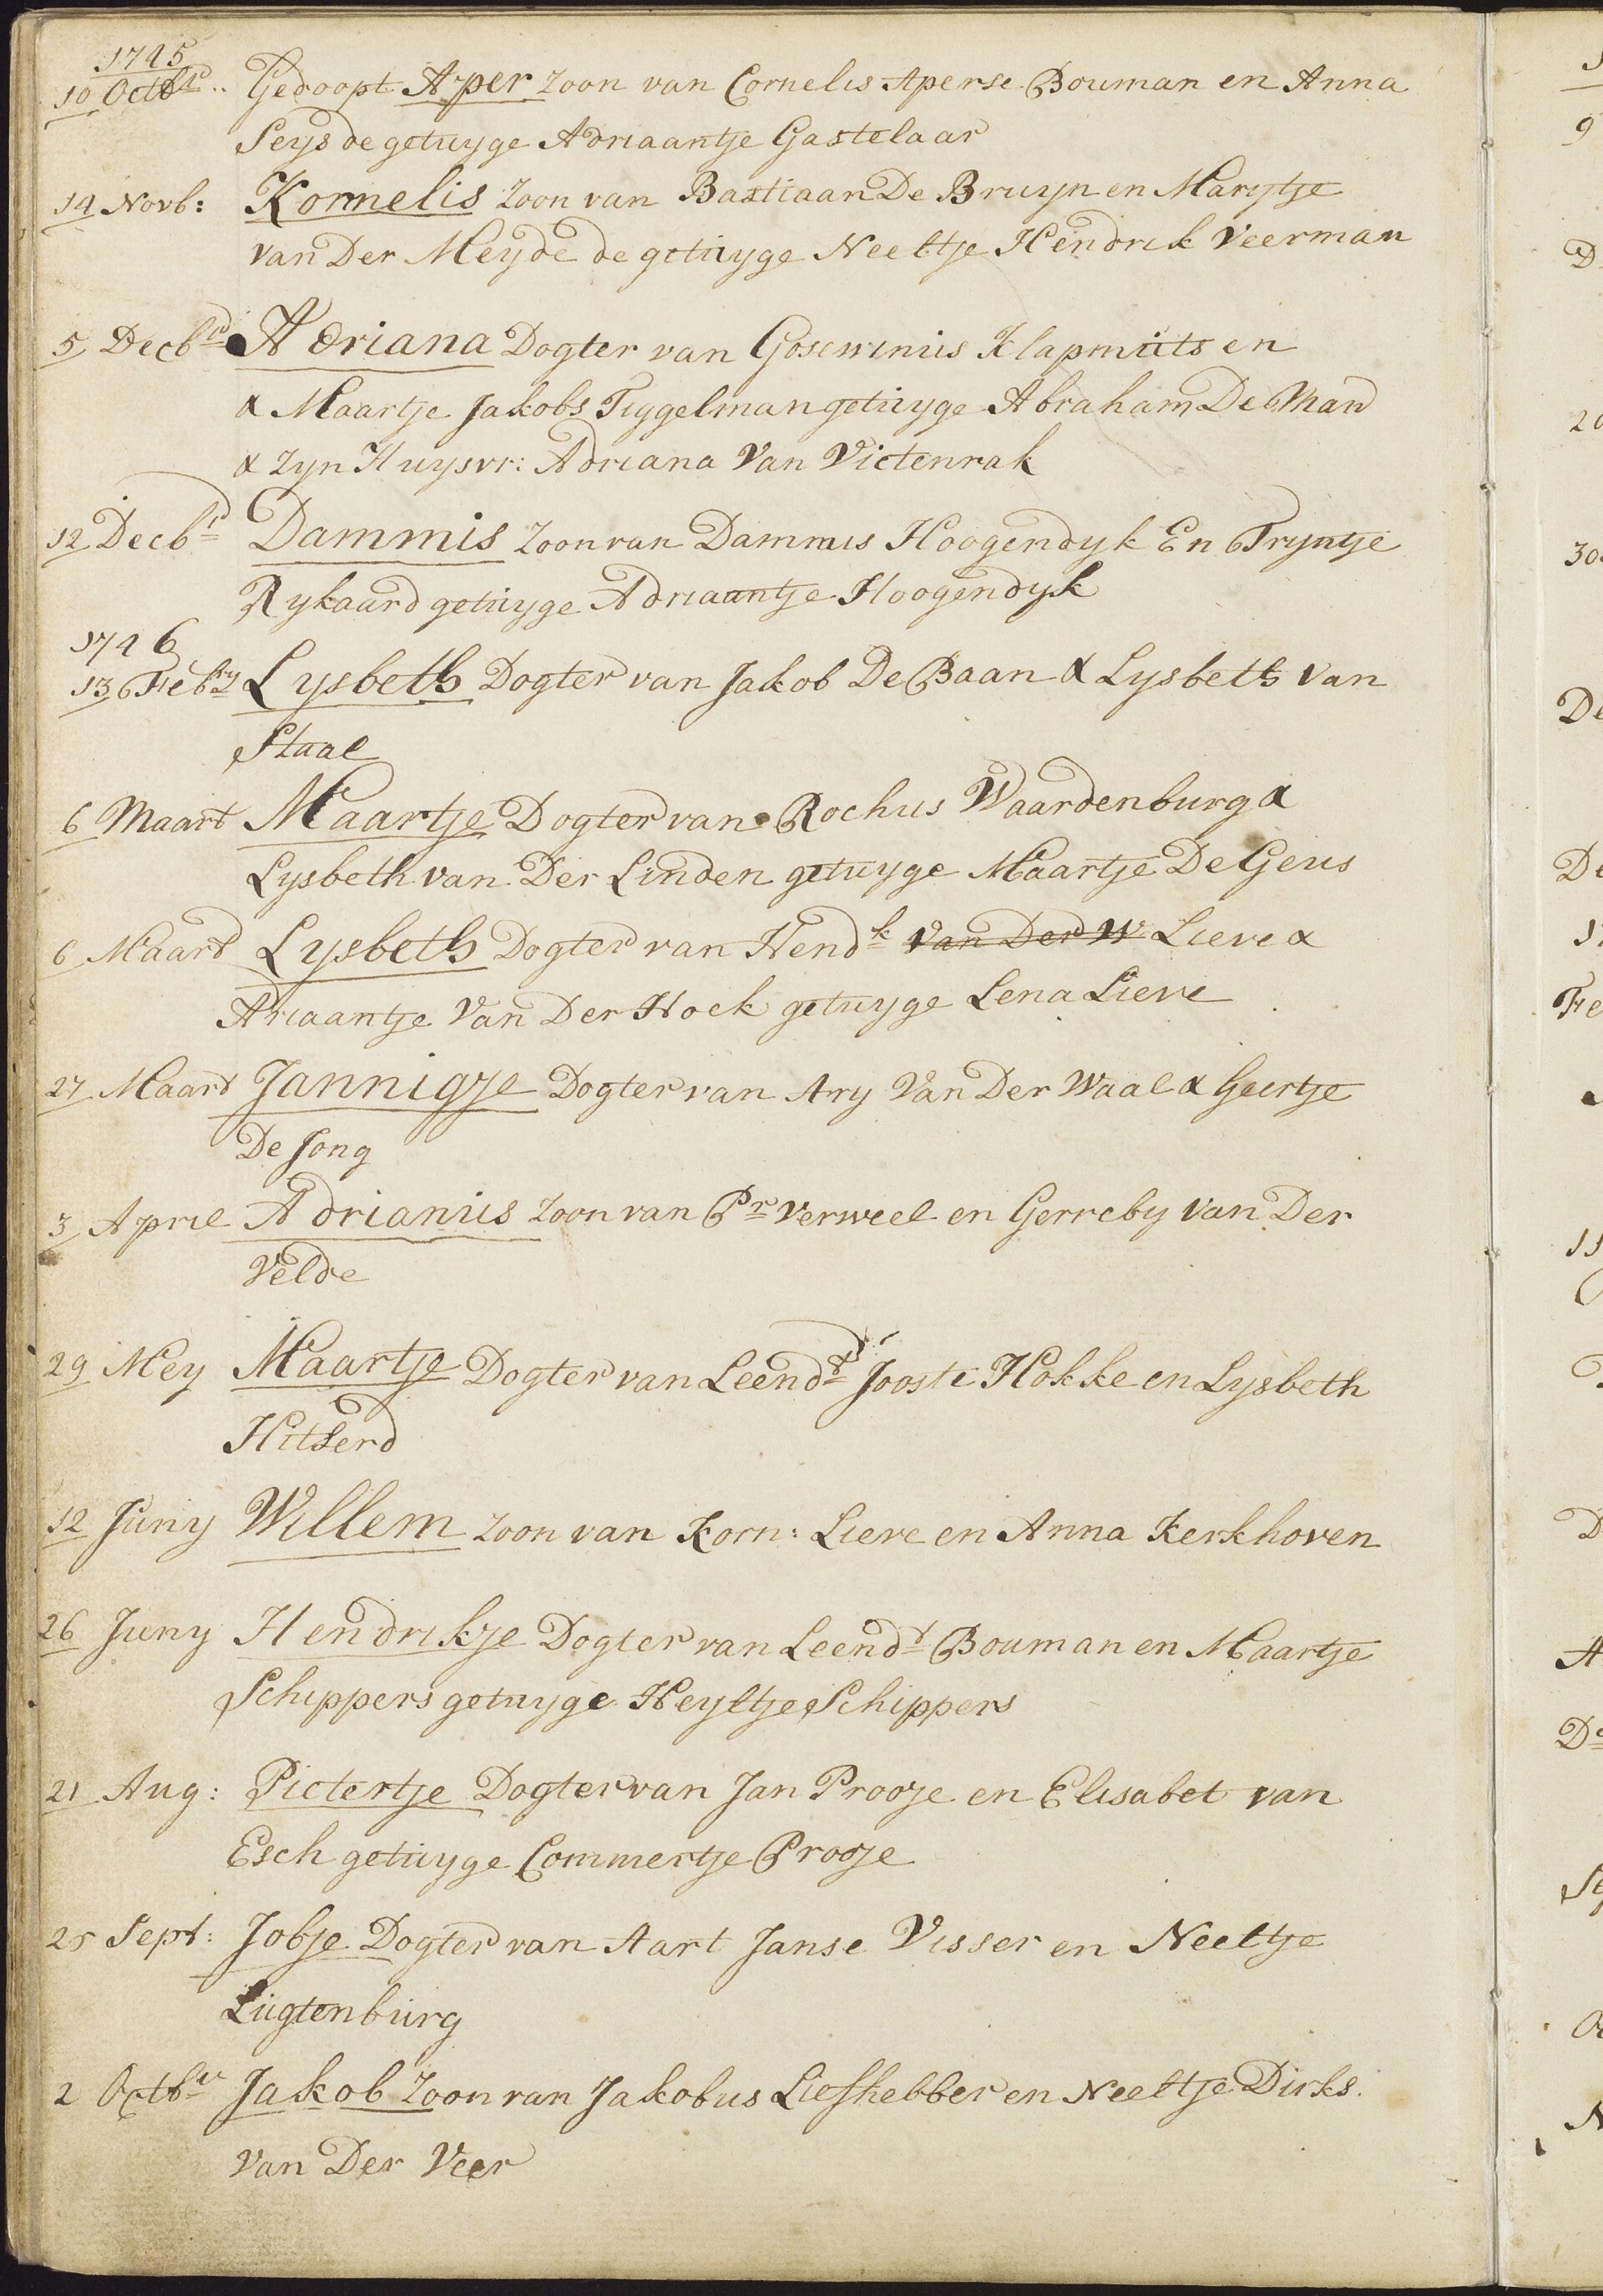 1745
10 Octbr.. Gedoopt Aper zoon van Cornelis Aperse Bouman en Anna
Seys de getuyge Adriaantje Gastelaar
14 Novb: Kornelis zoon van Bastiaan De Bruyn en Marytje
van Der Meyde de getuyge Neeltje Hendrik Veerman
5 Decbr Adriana Dogter van Goswinus Klapmuts en
& Maartje Jakobs Tuygelman getuyge Abraham De Man
& zyn Huysvr: Adriana Van Vietenrak
12 Decbr Dammis zoon van Dammis Hoogendyk En Tryntje
Rykaard getuyge Adriaantje Hoogendyk
1746
13 Febry Lysbeth Dogter van Jakob De Baan & Lysbeth Van
Staal
6 Maart Maartje Dogter van Rochus Waardenburg &
Lysbeth van Der Linden getuyge Maartje De Geus
6 Maart Lysbeth Dogter van Hendk Van Der W Lieve &
Ariaantje Van Der Hoek getuyge Lena Lieve
27 Maart Jannigje Dogter van Ary Van Der Waal & Geertje
De Jong
3 April Adrianus zoon van Pr Verweel en Gerreby Van Der
Velde
29 Mey Maartje Dogter van Leendt Jooste Hokke en Lysbeth
Hitserd
12 Juny Willem zoon van Korn: Lieve en Anna Kerkhoven
26 Juny Hendrikje Dogter van Leendt Bouman en Maartje
Schippers getuyge Heyltje Schippers
21 Aug: Pietertje Dogter van Jan Prooje en Elisabet van
Esch getuyge Commertje Prooje
25 Sept: Jobje Dogter van Aart Janse Visser en Neeltje
Lugtenburg
2 Octbr Jakob zoon van Jakobus Liefhebber en Neeltje Dirks.
Van Der Veer